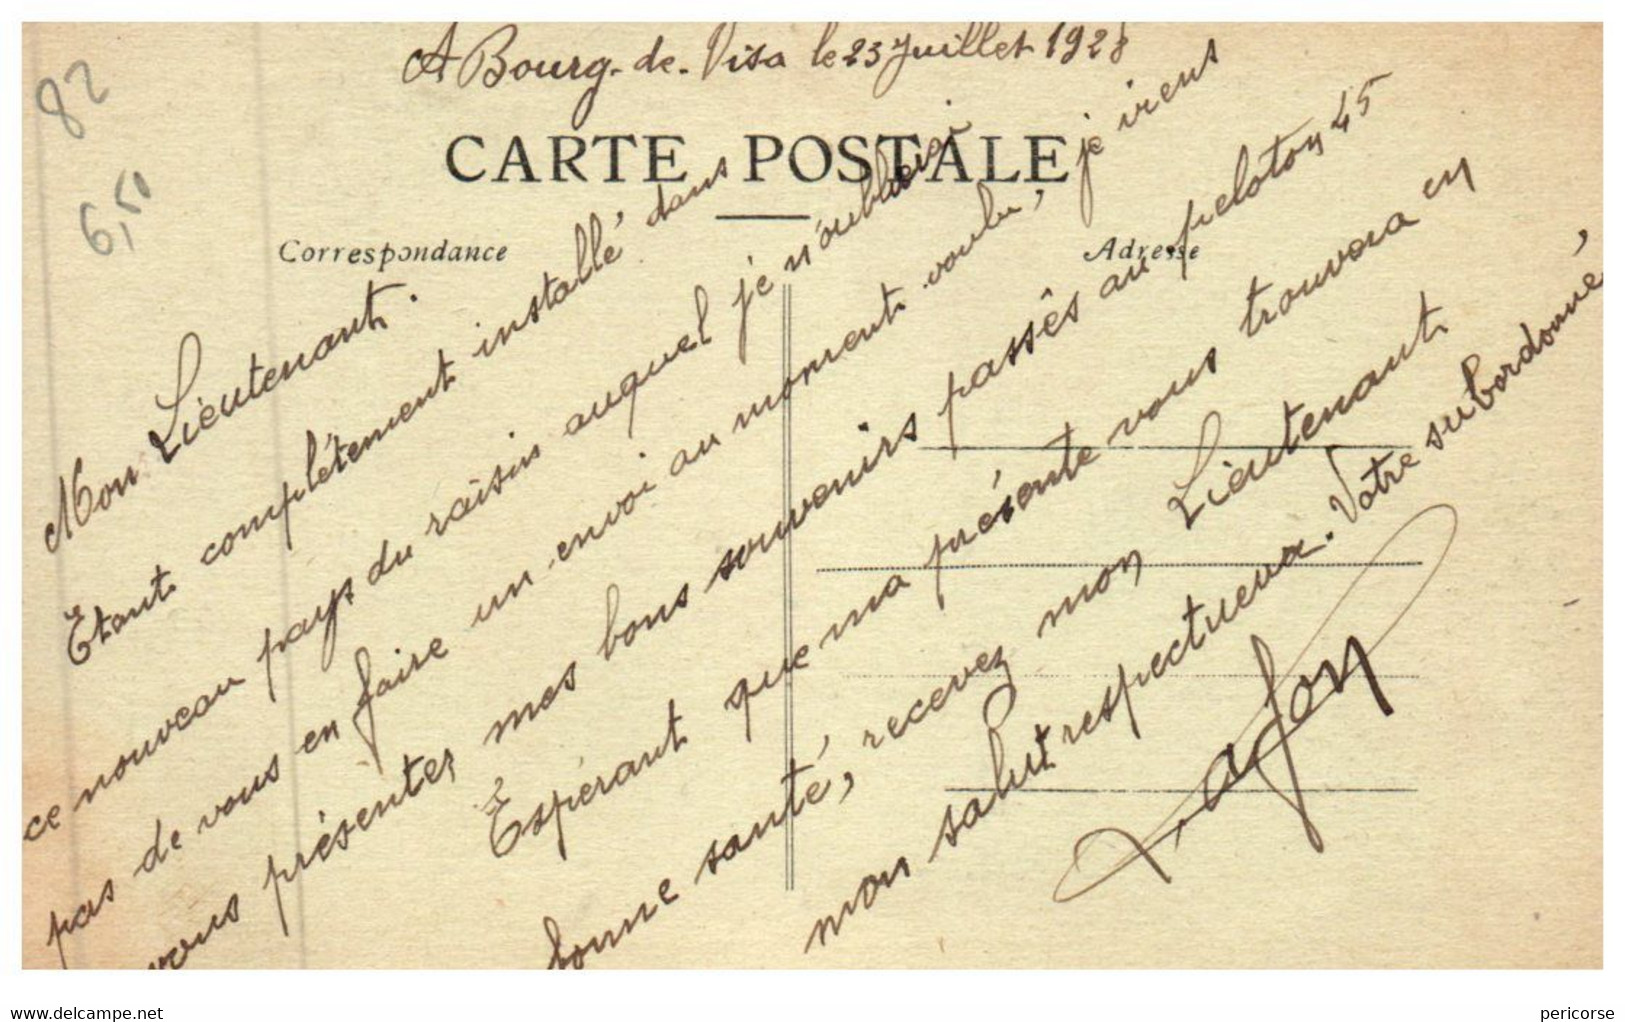 82
6,50
A Bourg-de-Visa le 23 Juillet 1928
CARTE POSTALE
Correspondance
Adresse
Mon Lieutenant.
Etant complétement installé dans
ce nouveau pays du raisin auquel je n'oublierai
pas de vous en faire un envoi au moment voulu, je viens
vous présenter mes bons souvenirs passés au peloton 45
Espérant que ma présente vous trouvera en
bonne santé, recevez mon Lieutenant
mon salut respectueux. Votre subordonné,
Lafon
www.delcampe.net
pericorse